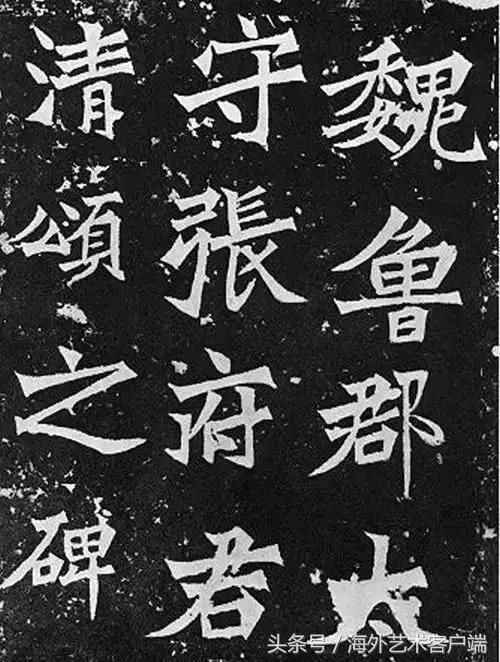 魏魯郡太
守張府君
清頌之碑
头条号／海外艺术客户端